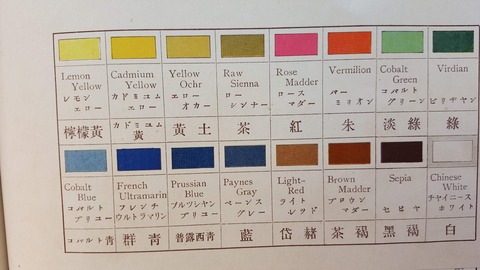 Lemon
Yellow
レモン
エロー
檸檬黃
Cadmium
Yellow
カドミユム
エロー
カドミユム
黃
Yellow
Ochr
エロー
オカー
黃土
Raw
Sienna
ロー
シンナー
茶
Rose
Madder
ロース
マダー
紅
Vermilion
バー
ミリオン
朱
Cobalt
Green
コバルト
グリーン
淡綠
Virdian
ビリヂヤン
綠
Cobalt
Blue
コバルト
ブリユー
コバルト青
French
Ultramarin
フレンチ
ウルトラマリン
群青
Prussian
Blue
プルツシヤン
ブリユー
普露西靑
Paynes
Gray
ペーンス
グレー
藍
Light-
Red
ライト
レツド
岱赭
Brown
Madder
ブロウン
マダー
茶褐
Sepia
セピヤ
黑褐
Chinese
White
チヤイニース
ホワイト
白